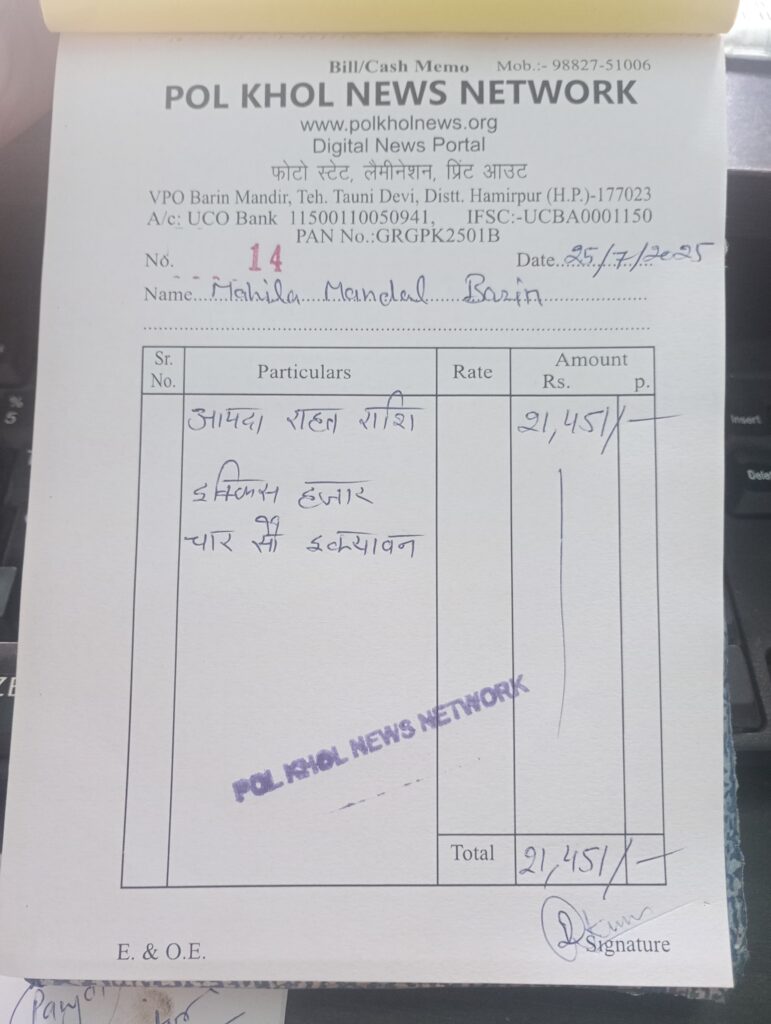 Bill/Cash Memo Mob.:- 98827-51006
POL KHOL NEWS NETWORK
www.polkholnews.org
Digital News Portal
फोटो स्टेट, लैमीनेशन, प्रिंट आउट
VPO Barin Mandir, Teh. Tauni Devi, Distt. Hamirpur (H.P.)-177023
A/c: UCO Bank 11500110050941, IFSC:-UCBA0001150
PAN No.:GRGPK2501B
No. 14 Date 25/7/2025
Name Mahila Mandal Barin
Sr. No. Particulars Rate Amount Rs. p.
आपदा राहत राशि 21,451/-
इक्किस हजार
चार सौ इकयावन
POL KHOL NEWS NETWORK
Total 21,451/-
E. & O.E. Signature
% 5
Insert